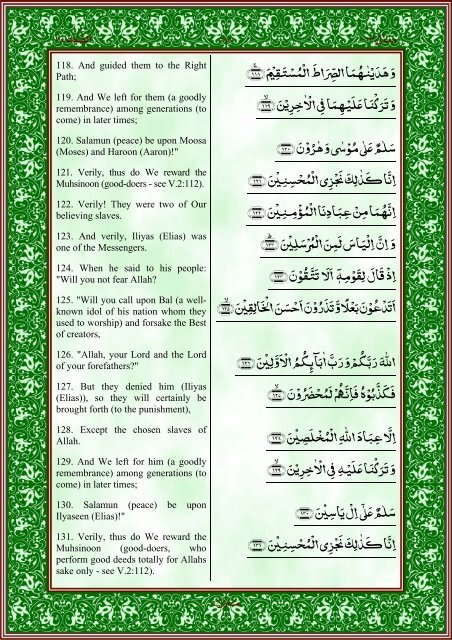 118. And guided them to the Right
Path;
119. And We left for them (a goodly
remembrance) among generations (to
come) in later times;
120. Salamun (peace) be upon Moosa
(Moses) and Haroon (Aaron)!"
121. Verily, thus do We reward the
Muhsinoon (good-doers - see V.2:112).
122. Verily! They were two of Our
believing slaves.
123. And verily, Iliyas (Elias) was
one of the Messengers.
124. When he said to his people:
"Will you not fear Allah?
125. "Will you call upon Bal (a well-
known idol of his nation whom they
used to worship) and forsake the Best
of creators,
126. "Allah, your Lord and the Lord
of your forefathers?"
127. But they denied him (Iliyas
(Elias)), so they will certainly be
brought forth (to the punishment),
128. Except the chosen slaves of
Allah.
129. And We left for him (a goodly
remembrance) among generations (to
come) in later times;
130. Salamun (peace) be upon
Ilyaseen (Elias)!"
131. Verily, thus do We reward the
Muhsinoon (good-doers, who
perform good deeds totally for Allahs
sake only - see V.2:112).
وَهَدَيْنٰهُمَا الصِّرَاطَ الْمُسْتَقِيْمَ ﴿١١٨﴾
وَتَرَكْنَا عَلَيْهِمَا فِى الْاٰخِرِيْنَ ﴿١١٩﴾
سَلٰمٌ عَلٰى مُوْسٰى وَهٰرُوْنَ ﴿١٢٠﴾
اِنَّا كَذٰلِكَ نَجْزِى الْمُحْسِنِيْنَ ﴿١٢١﴾
اِنَّهُمَا مِنْ عِبَادِنَا الْمُؤْمِنِيْنَ ﴿١٢٢﴾
وَاِنَّ اِلْيَاسَ لَمِنَ الْمُرْسَلِيْنَ ﴿١٢٣﴾
اِذْ قَالَ لِقَوْمِهٖٓ اَلَا تَتَّقُوْنَ ﴿١٢٤﴾
اَتَدْعُوْنَ بَعْلًا وَّتَذَرُوْنَ اَحْسَنَ الْخَالِقِيْنَ ﴿١٢٥﴾
اللّٰهَ رَبَّكُمْ وَرَبَّ اٰبَآئِكُمُ الْاَوَّلِيْنَ ﴿١٢٦﴾
فَكَذَّبُوْهُ فَاِنَّهُمْ لَمُحْضَرُوْنَ ﴿١٢٧﴾
اِلَّا عِبَادَ اللّٰهِ الْمُخْلَصِيْنَ ﴿١٢٨﴾
وَتَرَكْنَا عَلَيْهِ فِى الْاٰخِرِيْنَ ﴿١٢٩﴾
سَلٰمٌ عَلٰٓى اِلْ يَاسِيْنَ ﴿١٣٠﴾
اِنَّا كَذٰلِكَ نَجْزِى الْمُحْسِنِيْنَ ﴿١٣١﴾